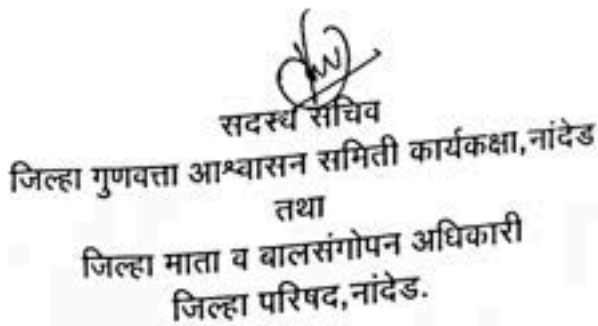 सदस्य सचिव
जिल्हा गुणवत्ता आश्वासन समिती कार्यकक्षा,नांदेड
तथा
जिल्हा माता व बालसंगोपन अधिकारी
जिल्हा परिषद,नांदेड.